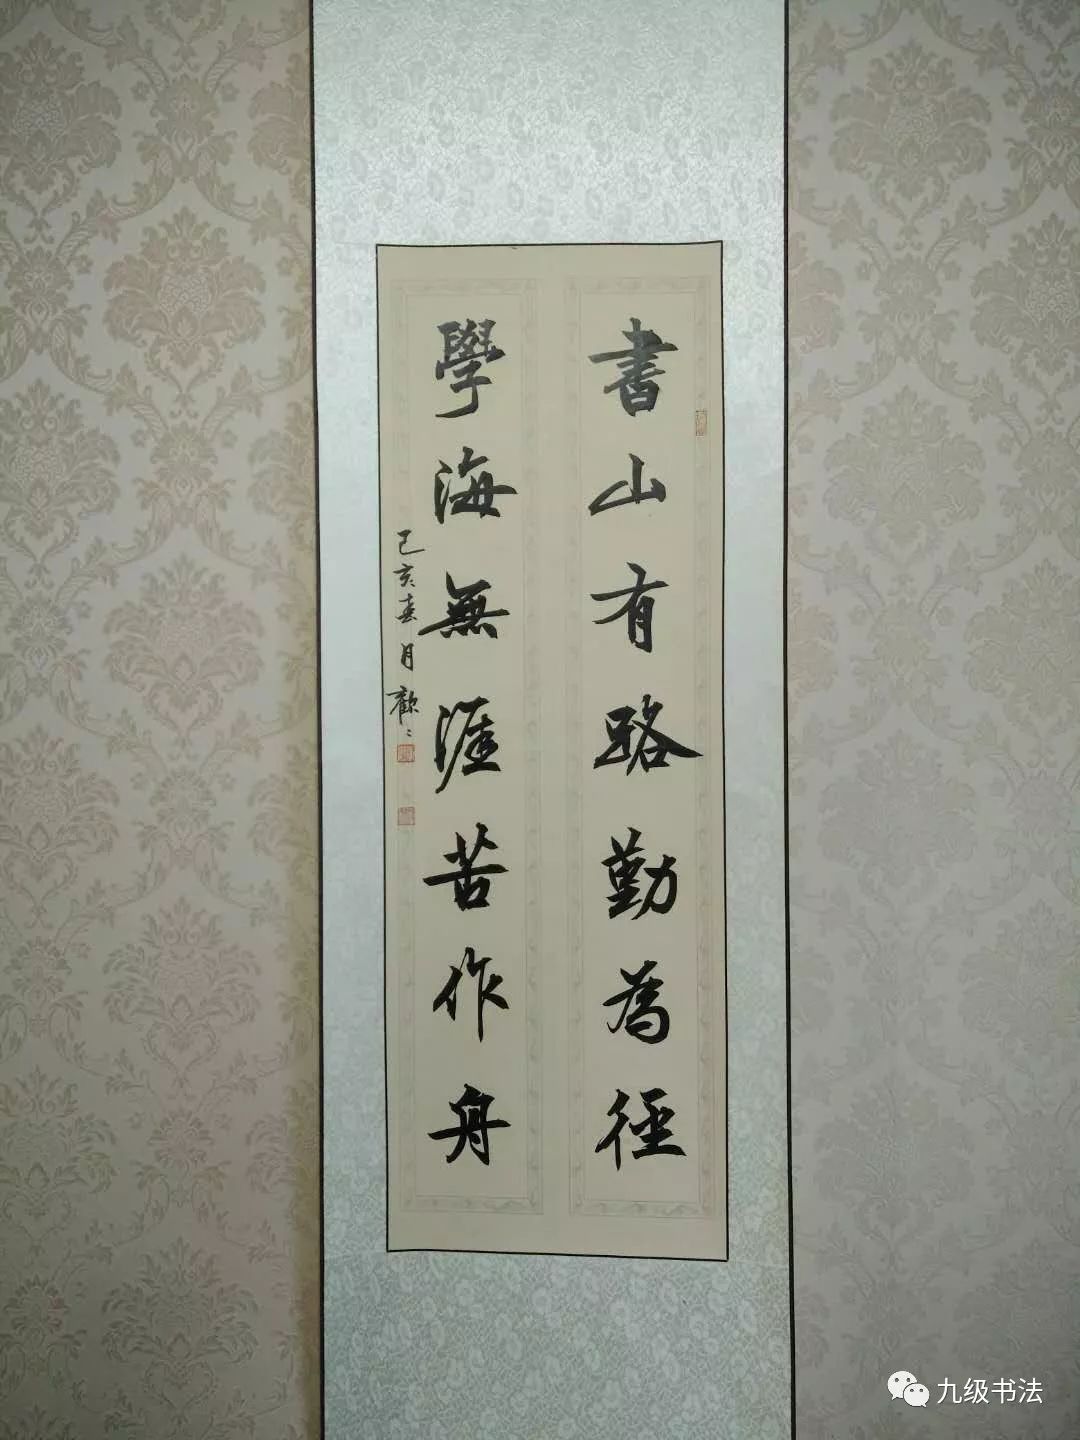 書山有路勤為徑
學海無涯苦作舟
己亥春月歡〻
九级书法